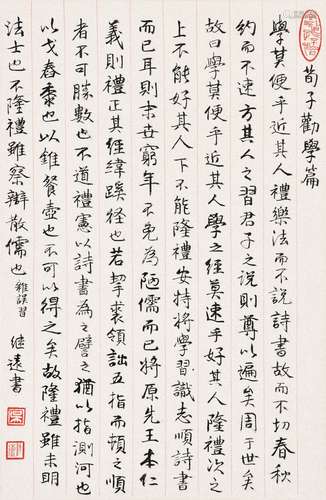 荀子勸學篇
學莫便乎近其人禮樂法而不說詩書故而不切春秋
約而不速方其人之習君子之說則尊以遍矣周于世矣
故曰學莫便乎近其人學之經莫速乎好其人隆禮次之
上不能好其人下不能隆禮安特將學習識志順詩書
而已耳則末世窮年不免為陋儒而已將原先王本仁
義則禮正其經緯蹊徑也若挈裘領詘五指而頓之順
者不可勝數也不道禮憲以詩書為之譬之猶以指測河也
以戈舂黍也以錐餐壺也不可以得之矣故隆禮雖未明
法士也不隆禮雖察辯散儒也 雜誤習 继遠書